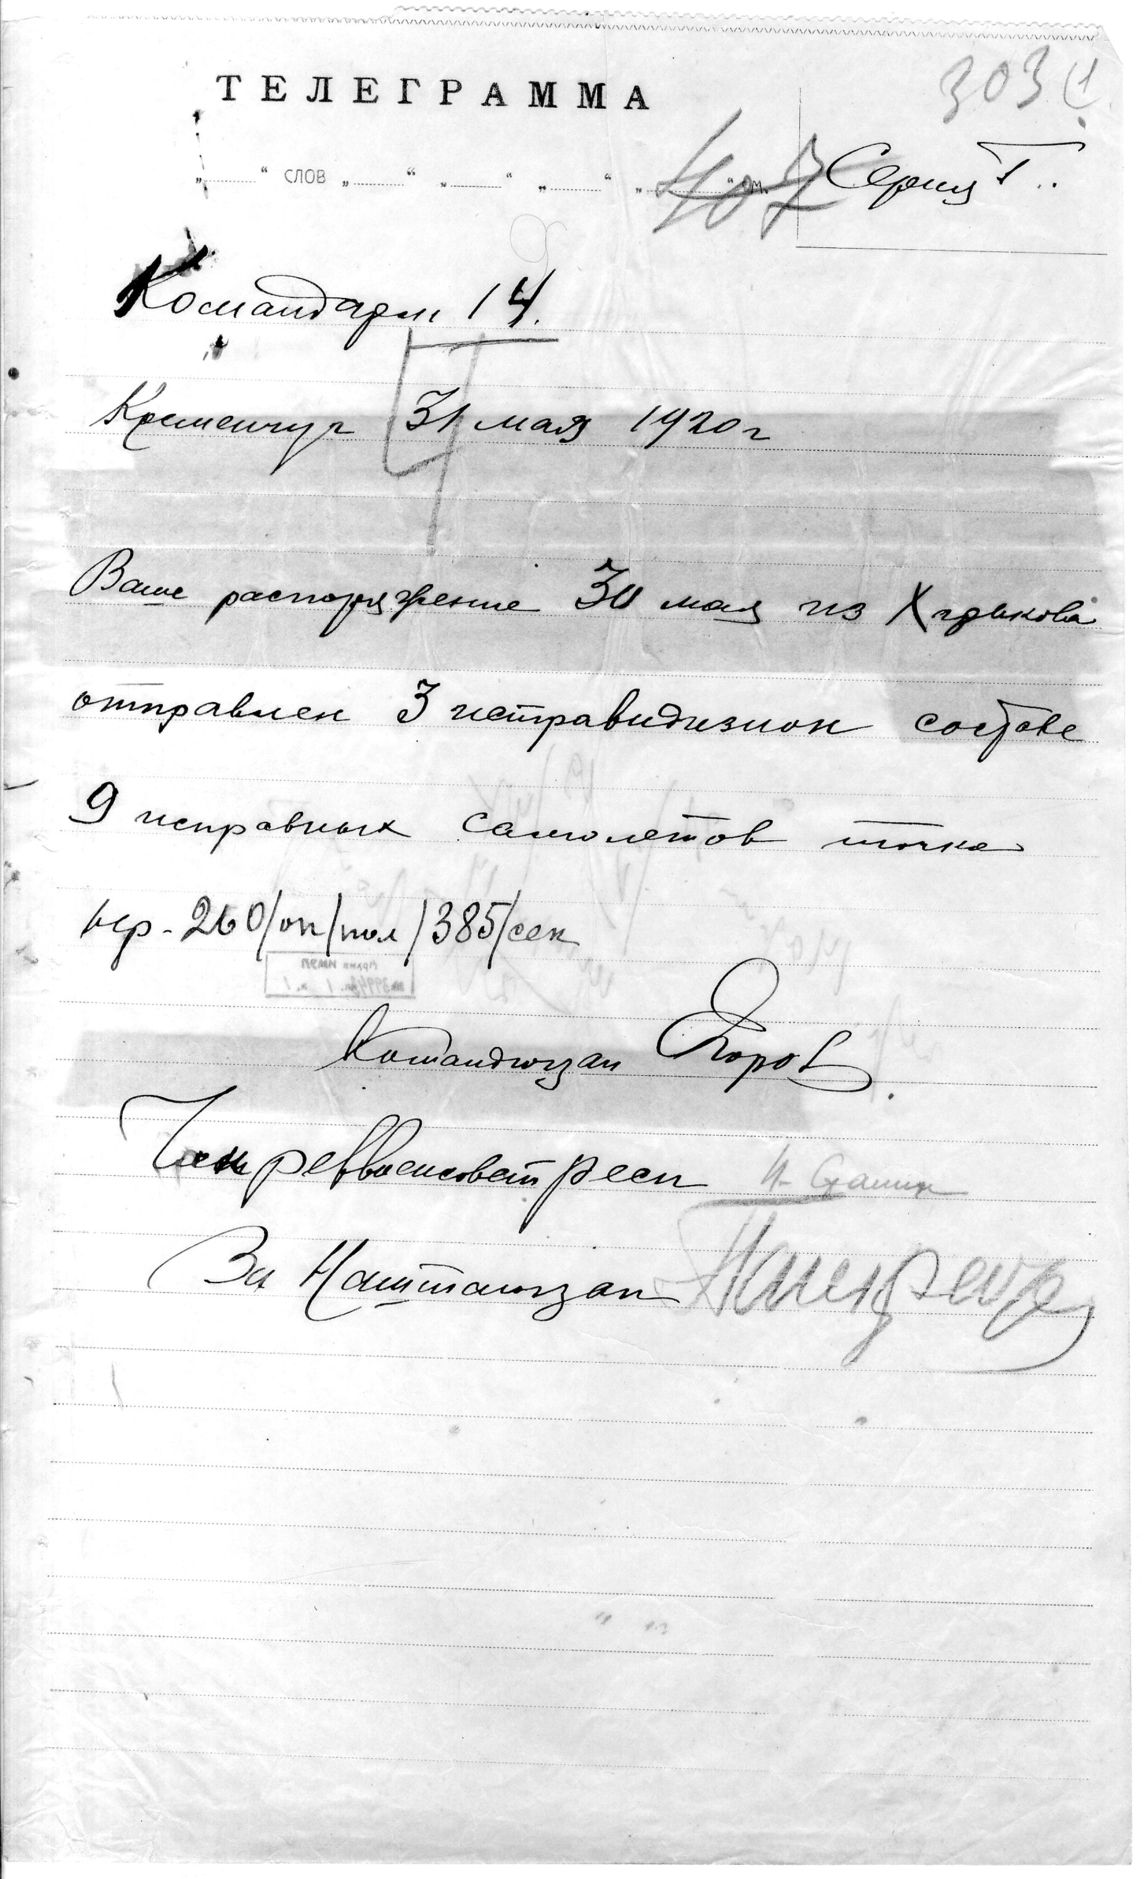 303
ТЕЛЕГРАММА
„ “ СЛОВ „ “ „ “ „ “ „
407 Серия Г.
Командарм 14.
Кременчуг 31 мая 1920 г
Ваше распоряжение 30 мая из Харькова
отправлен 3 истравидивизион составе
9 исправных самолетов точка
нр-260/оп/пол/385/сек
Командюгзап Егоров.
Член реввоенсовет респ И. Сталин
За Наштаюгзап